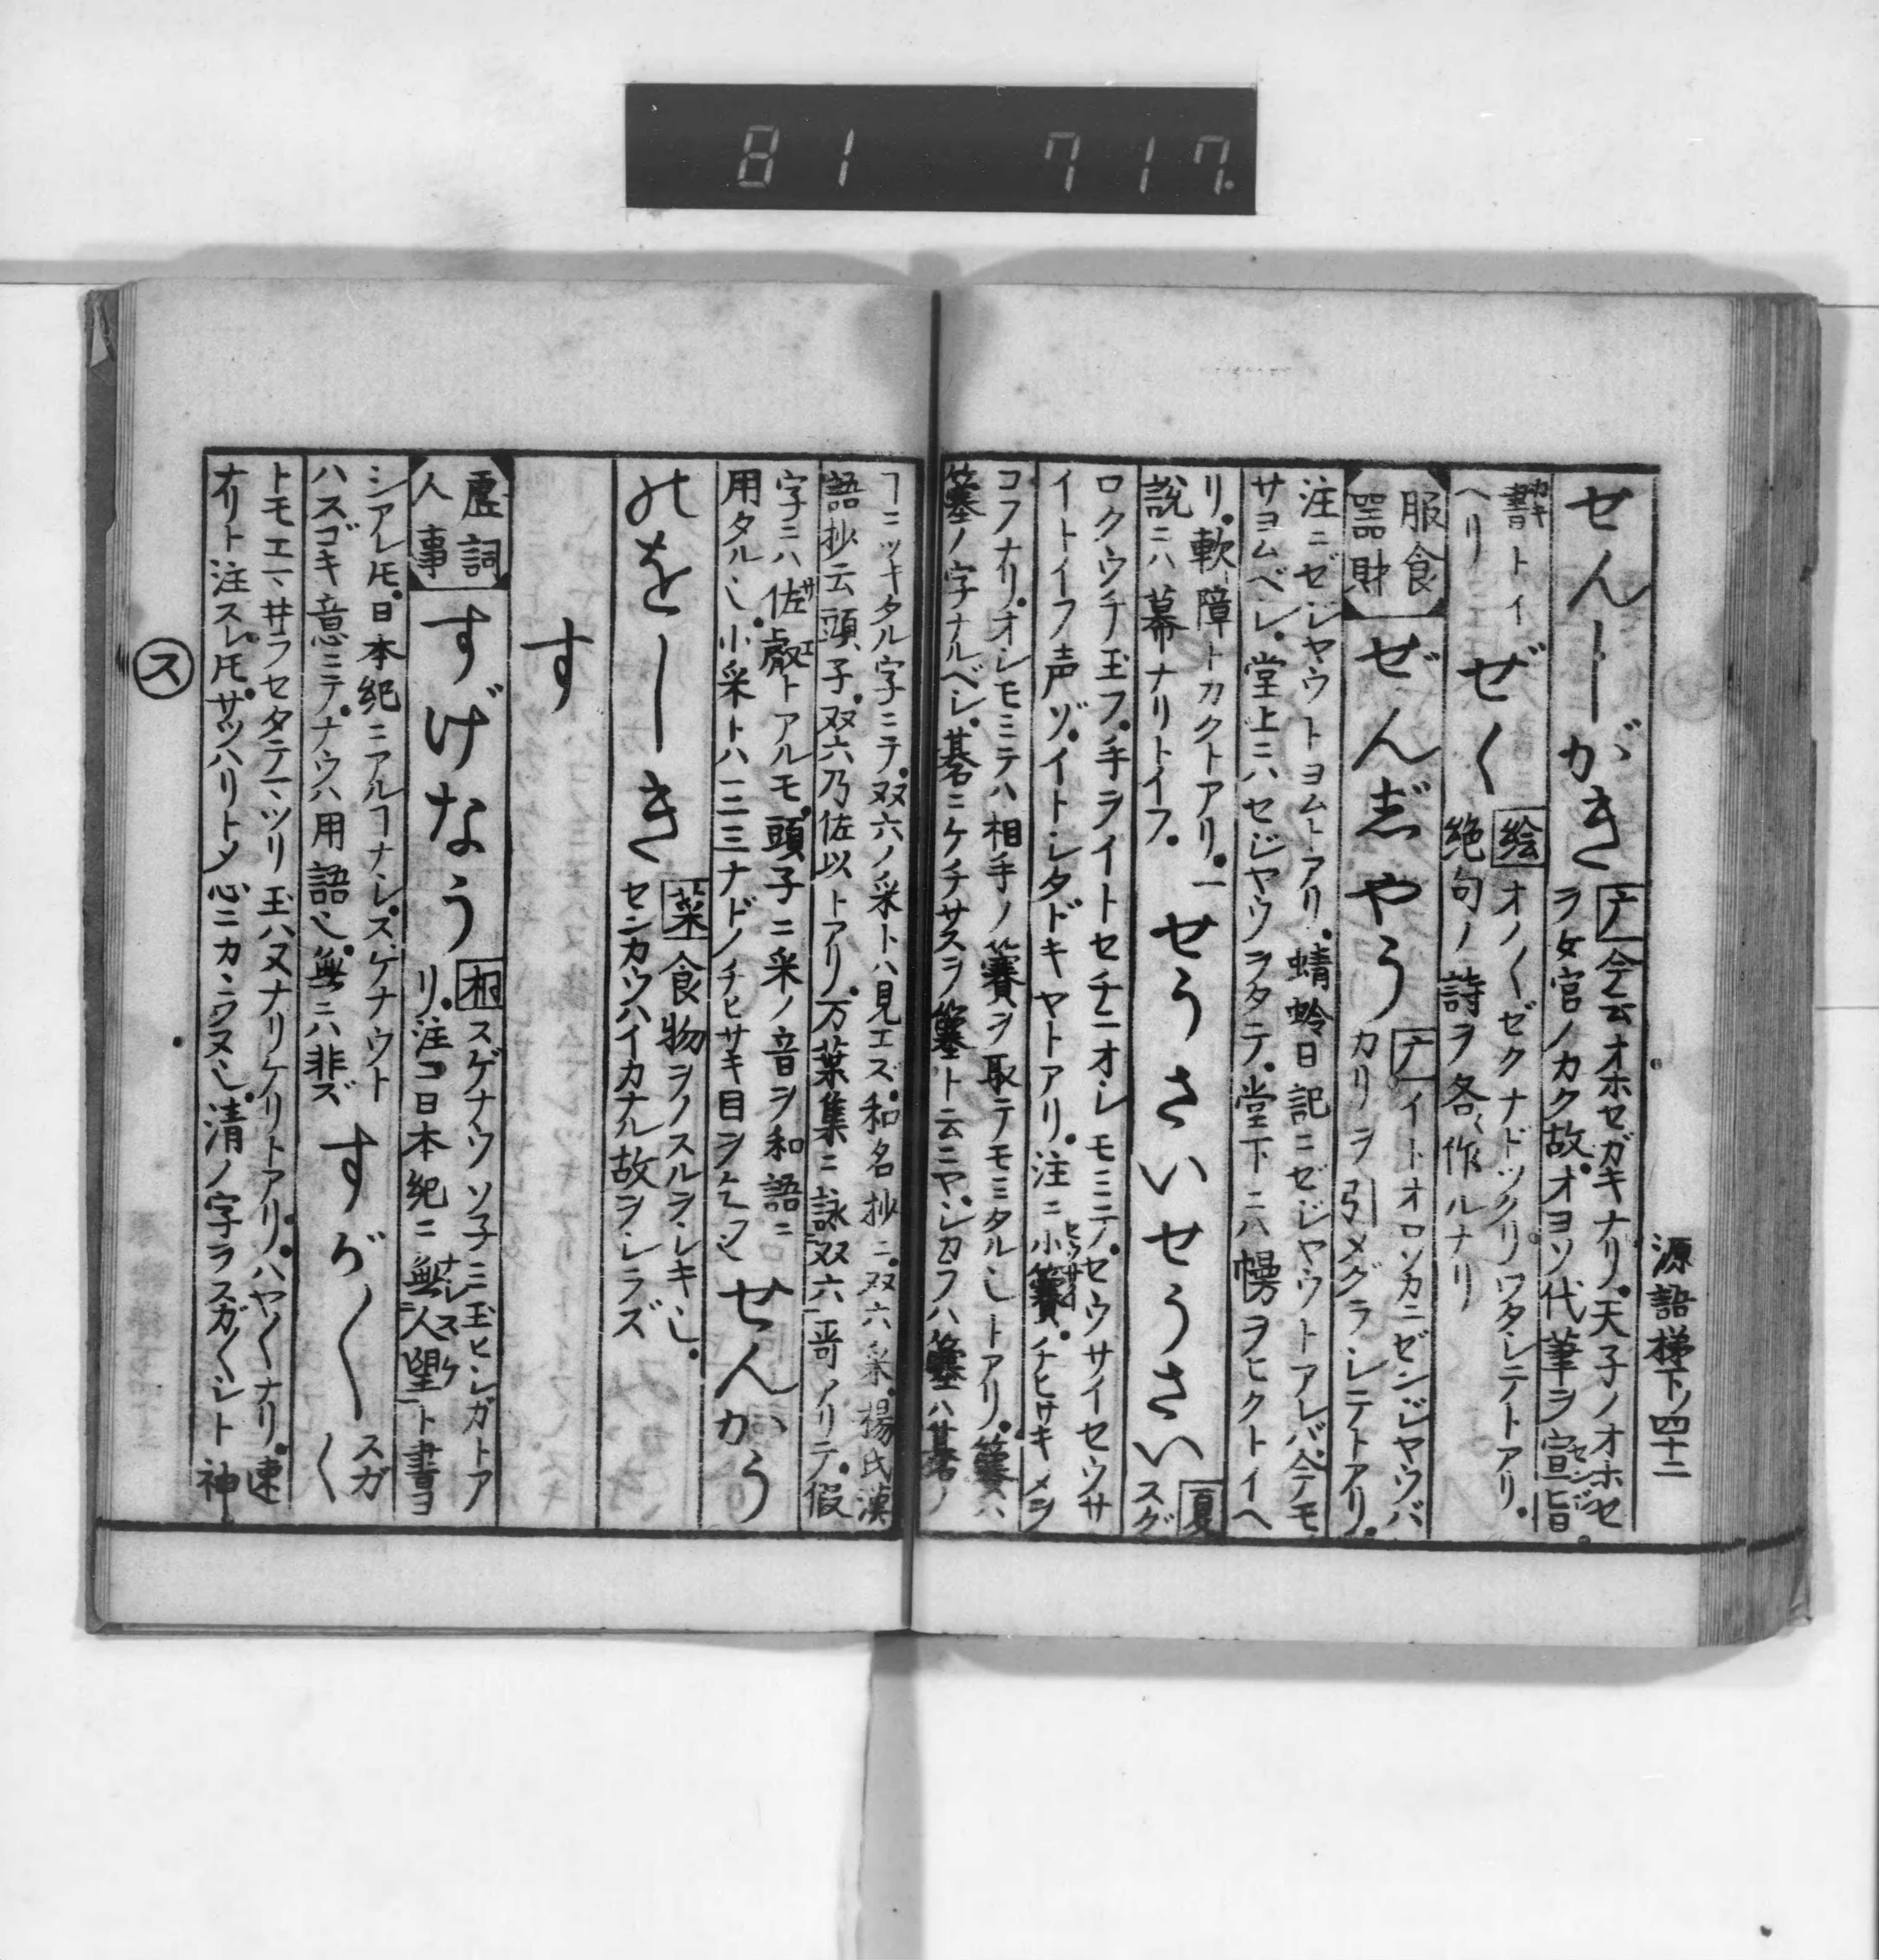 81 717.
源語梯下ノ四十二
せんじがき
サ 今云オホセガキナリ。天子ノオホセ
ラ女官ノカク故。オヨソ代筆ヲ宣旨
書トイ
ヘリ
ぜく
絵 オノ〱ゼクナドツクリワタシニテトアリ。
絶句ノ詩ヲ各〻作ルナリ
服食
器財
ぜんざやう
サ イトオロソカニゼンジヤウバ
カリヲ引メグラシテトアリ。
注ニゼジヤウトヨムトアリ。蜻蛉日記ニゼジヤウトアレバ今テモ
サヨムベシ。堂上ニハセジヤウヲタテ。堂下ニハ幔ヲヒクトイヘ
リ。軟障トカクトアリ。一
説ニハ幕ナリトイフ。
せうさいせうさい
夏
スグ
ロクウチ玉フ。手ヲイトセチニオシモミニテ。セウサイセウサ
イトイフ声ゾ。イトシタドキヤトアリ。注ニ小賽。チヒサキメヲ
コフナリ。オシモミテハ相手ノ賽ヲ取テモミタル也トアリ。簺ハ
簺ノ字ナルベシ。碁ニケチサスヲ簺ト云ニヤ。シカフハ簺ハ碁ノ
ヿニツキタル字ニテ。双六ノ采トハ見エズ。和名抄ニ。双六采。楊氏漢
語抄云頭子。双六乃佐以トアリ。万葉集ニ詠双六哥アリテ。假
字ニハ佐叡トアルモ。頭子ニ采ノ音ヲ和語ニ
用タル也。小采トハ一二三ナドノチヒサキ目ヲ乞フ也
せんかう
のをしき
菜 食物ヲノスルヲシキ也。
センカウハイカナル故ヲシラズ
す
虚詞
人事
すげなう
桐 スゲナウソ子ミ玉ヒシガトア
リ。注ニ日本紀ニ無人望ト書ヨ
シアレ𪜈。日本紀ニアルヿナシ。スゲナウト
ハスゴキ意ニテ。ナウハ用語也。無ニハ非ズ
すが〱
スガ
〱
トモエマ井ラセタテマツリ玉ハヌナリケリトアリ。ハヤ〱ナリ。速
オリト注スレ𪜈。サツハリトメ心ニカヽラヌ也。清ノ字ヲスガ〱シト神
ス